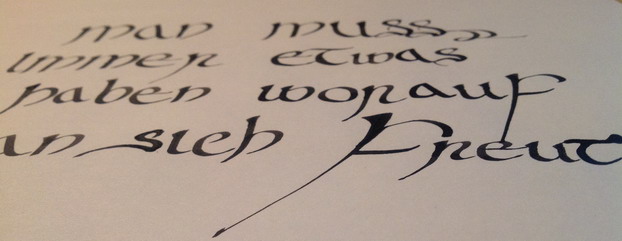 man muss
immer etwas
haben worauf
an sich freut